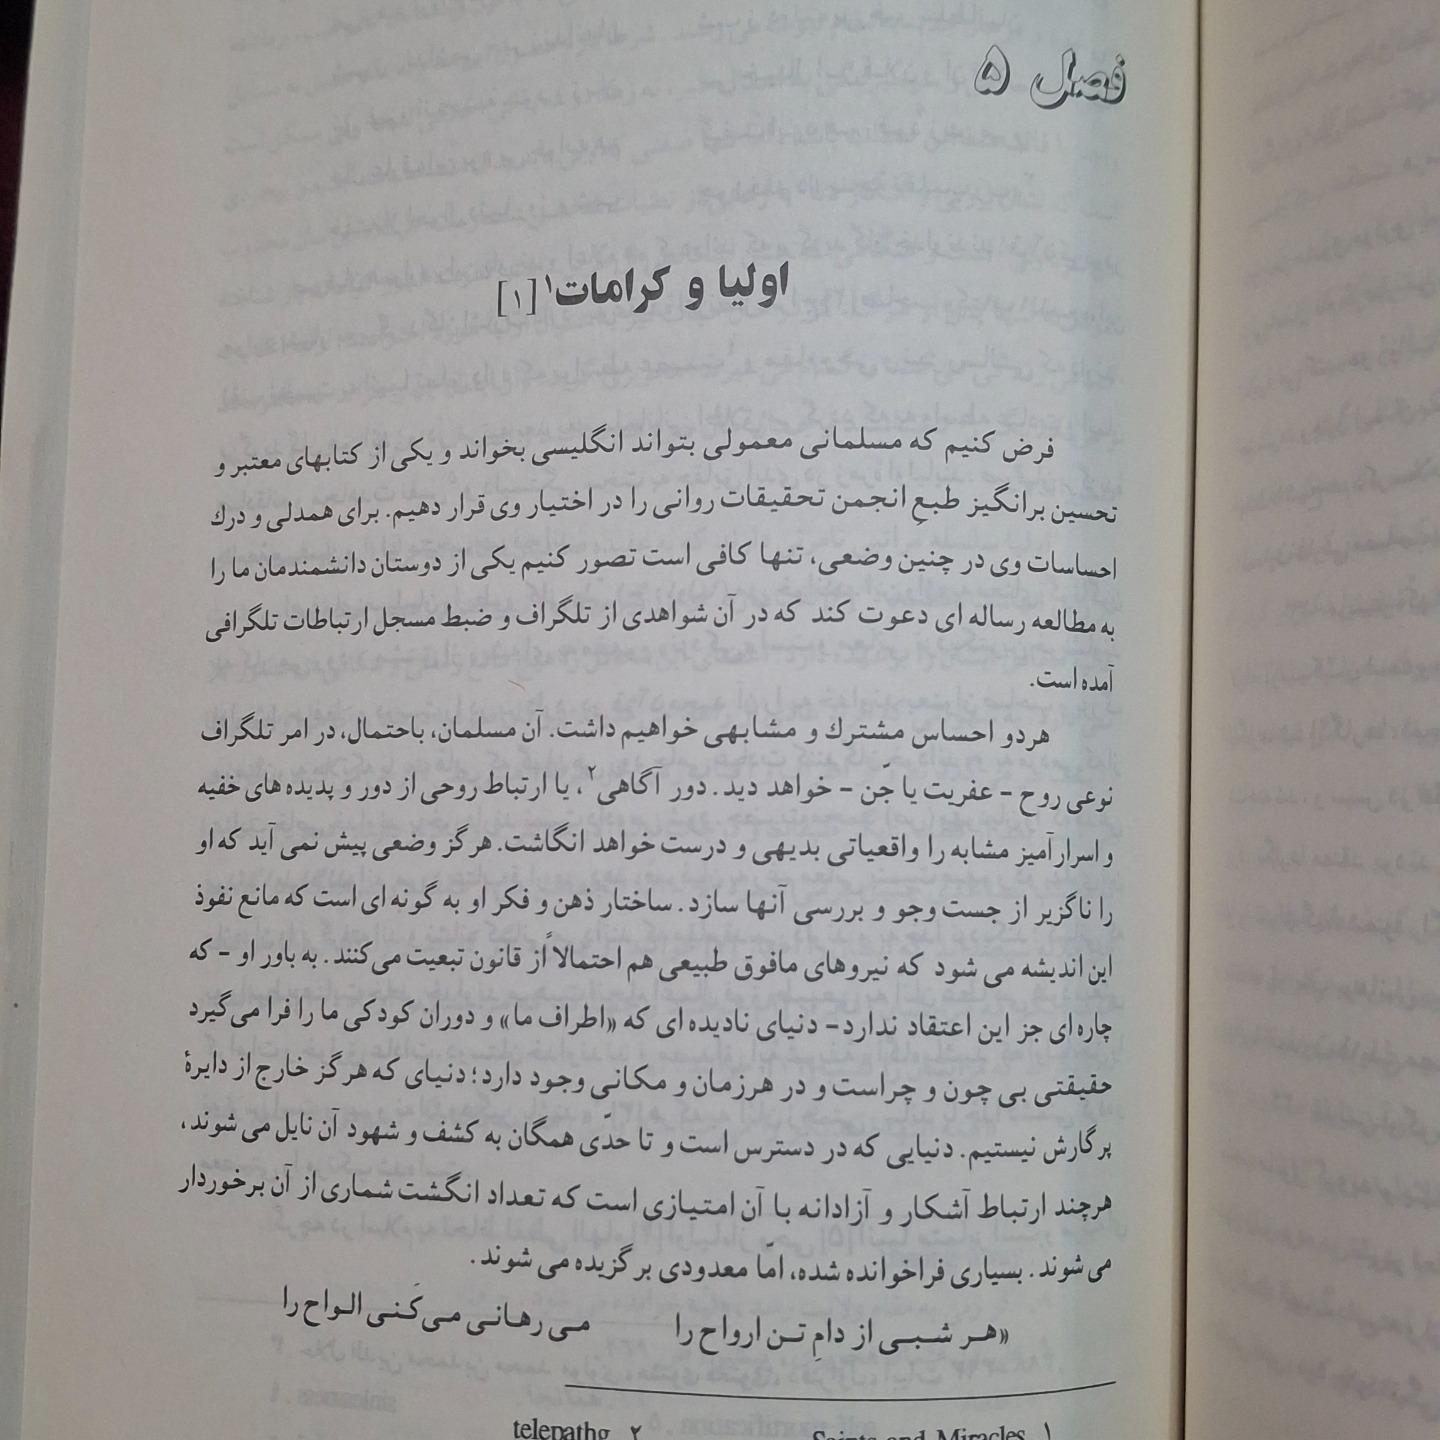 فصل ۵
اولیا و کرامات۱ [۱]
فرض کنیم که مسلمانی معمولی بتواند انگلیسی بخواند و یکی از کتابهای معتبر و
تحسین برانگیز طبعِ انجمن تحقیقات روانی را در اختیار وی قرار دهیم. برای همدلی و درك
احساسات وی در چنین وضعی، تنها کافی است تصور کنیم یکی از دوستان دانشمندمان ما را
به مطالعه رساله ای دعوت کند که در آن شواهدی از تلگراف و ضبط مسجل ارتباطات تلگرافی
آمده است.
هردو احساس مشترك و مشابهی خواهیم داشت. آن مسلمان، باحتمال، در امر تلگراف
نوعی روح - عفریت یا جّن - خواهد دید. دور آگاهی۲، یا ارتباط روحی از دور و پدیده های خفیه
و اسرارآمیز مشابه را واقعیاتی بدیهی و درست خواهد انگاشت. هرگز وضعی پیش نمی آید که او
را ناگزیر از جست وجو و بررسی آنها سازد. ساختار ذهن و فکر او به گونه ای است که مانع نفوذ
این اندیشه می شود که نیروهای مافوق طبیعی هم احتمالاً از قانون تبعیت می‌کنند. به باور او - که
چاره ای جز این اعتقاد ندارد- دنیای نادیده ای که «اطراف ما» و دوران کودکی ما را فرا می‌گیرد
حقیقتی بی چون و چراست و در هرزمان و مکانی وجود دارد؛ دنیای که هرگز خارج از دایرۀ
پرگارش نیستیم. دنیایی که در دسترس است و تا حدّی همگان به کشف و شهود آن نایل می شوند،
هرچند ارتباط آشکار و آزادانه با آن امتیازی است که تعداد انگشت شماری از آن برخوردار
می شوند. بسیاری فراخوانده شده، امّا معدودی برگزیده می شوند.
«هر شبی از دامِ تن ارواح را می رهانی می‌کَنی الواح را
۱ Saints and Miracles ۲ telepathg